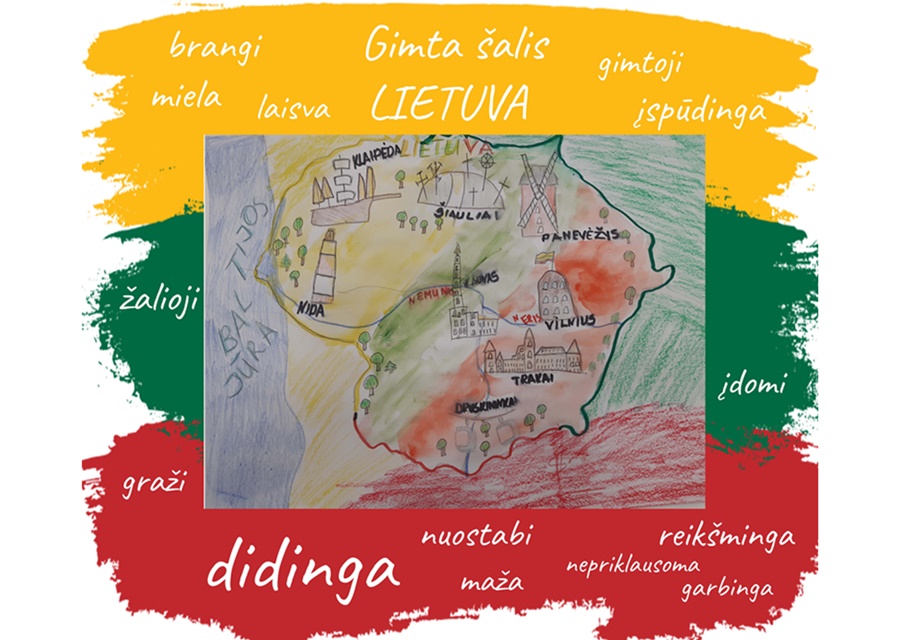 brangi
Gimta šalis
gimtoji
miela
laisva
LIETUVA
įspūdinga
LIETUVA
KLAIPĖDA
ŠIAULIAI
PANEVĖŽYS
BALTIJOS
JŪRA
NIDA
KAUNAS
NEMUNAS
NERIS
VILNIUS
TRAKAI
DRUSKININKAI
žalioji
įdomi
graži
didinga
nuostabi
reikšminga
maža
nepriklausoma
garbinga